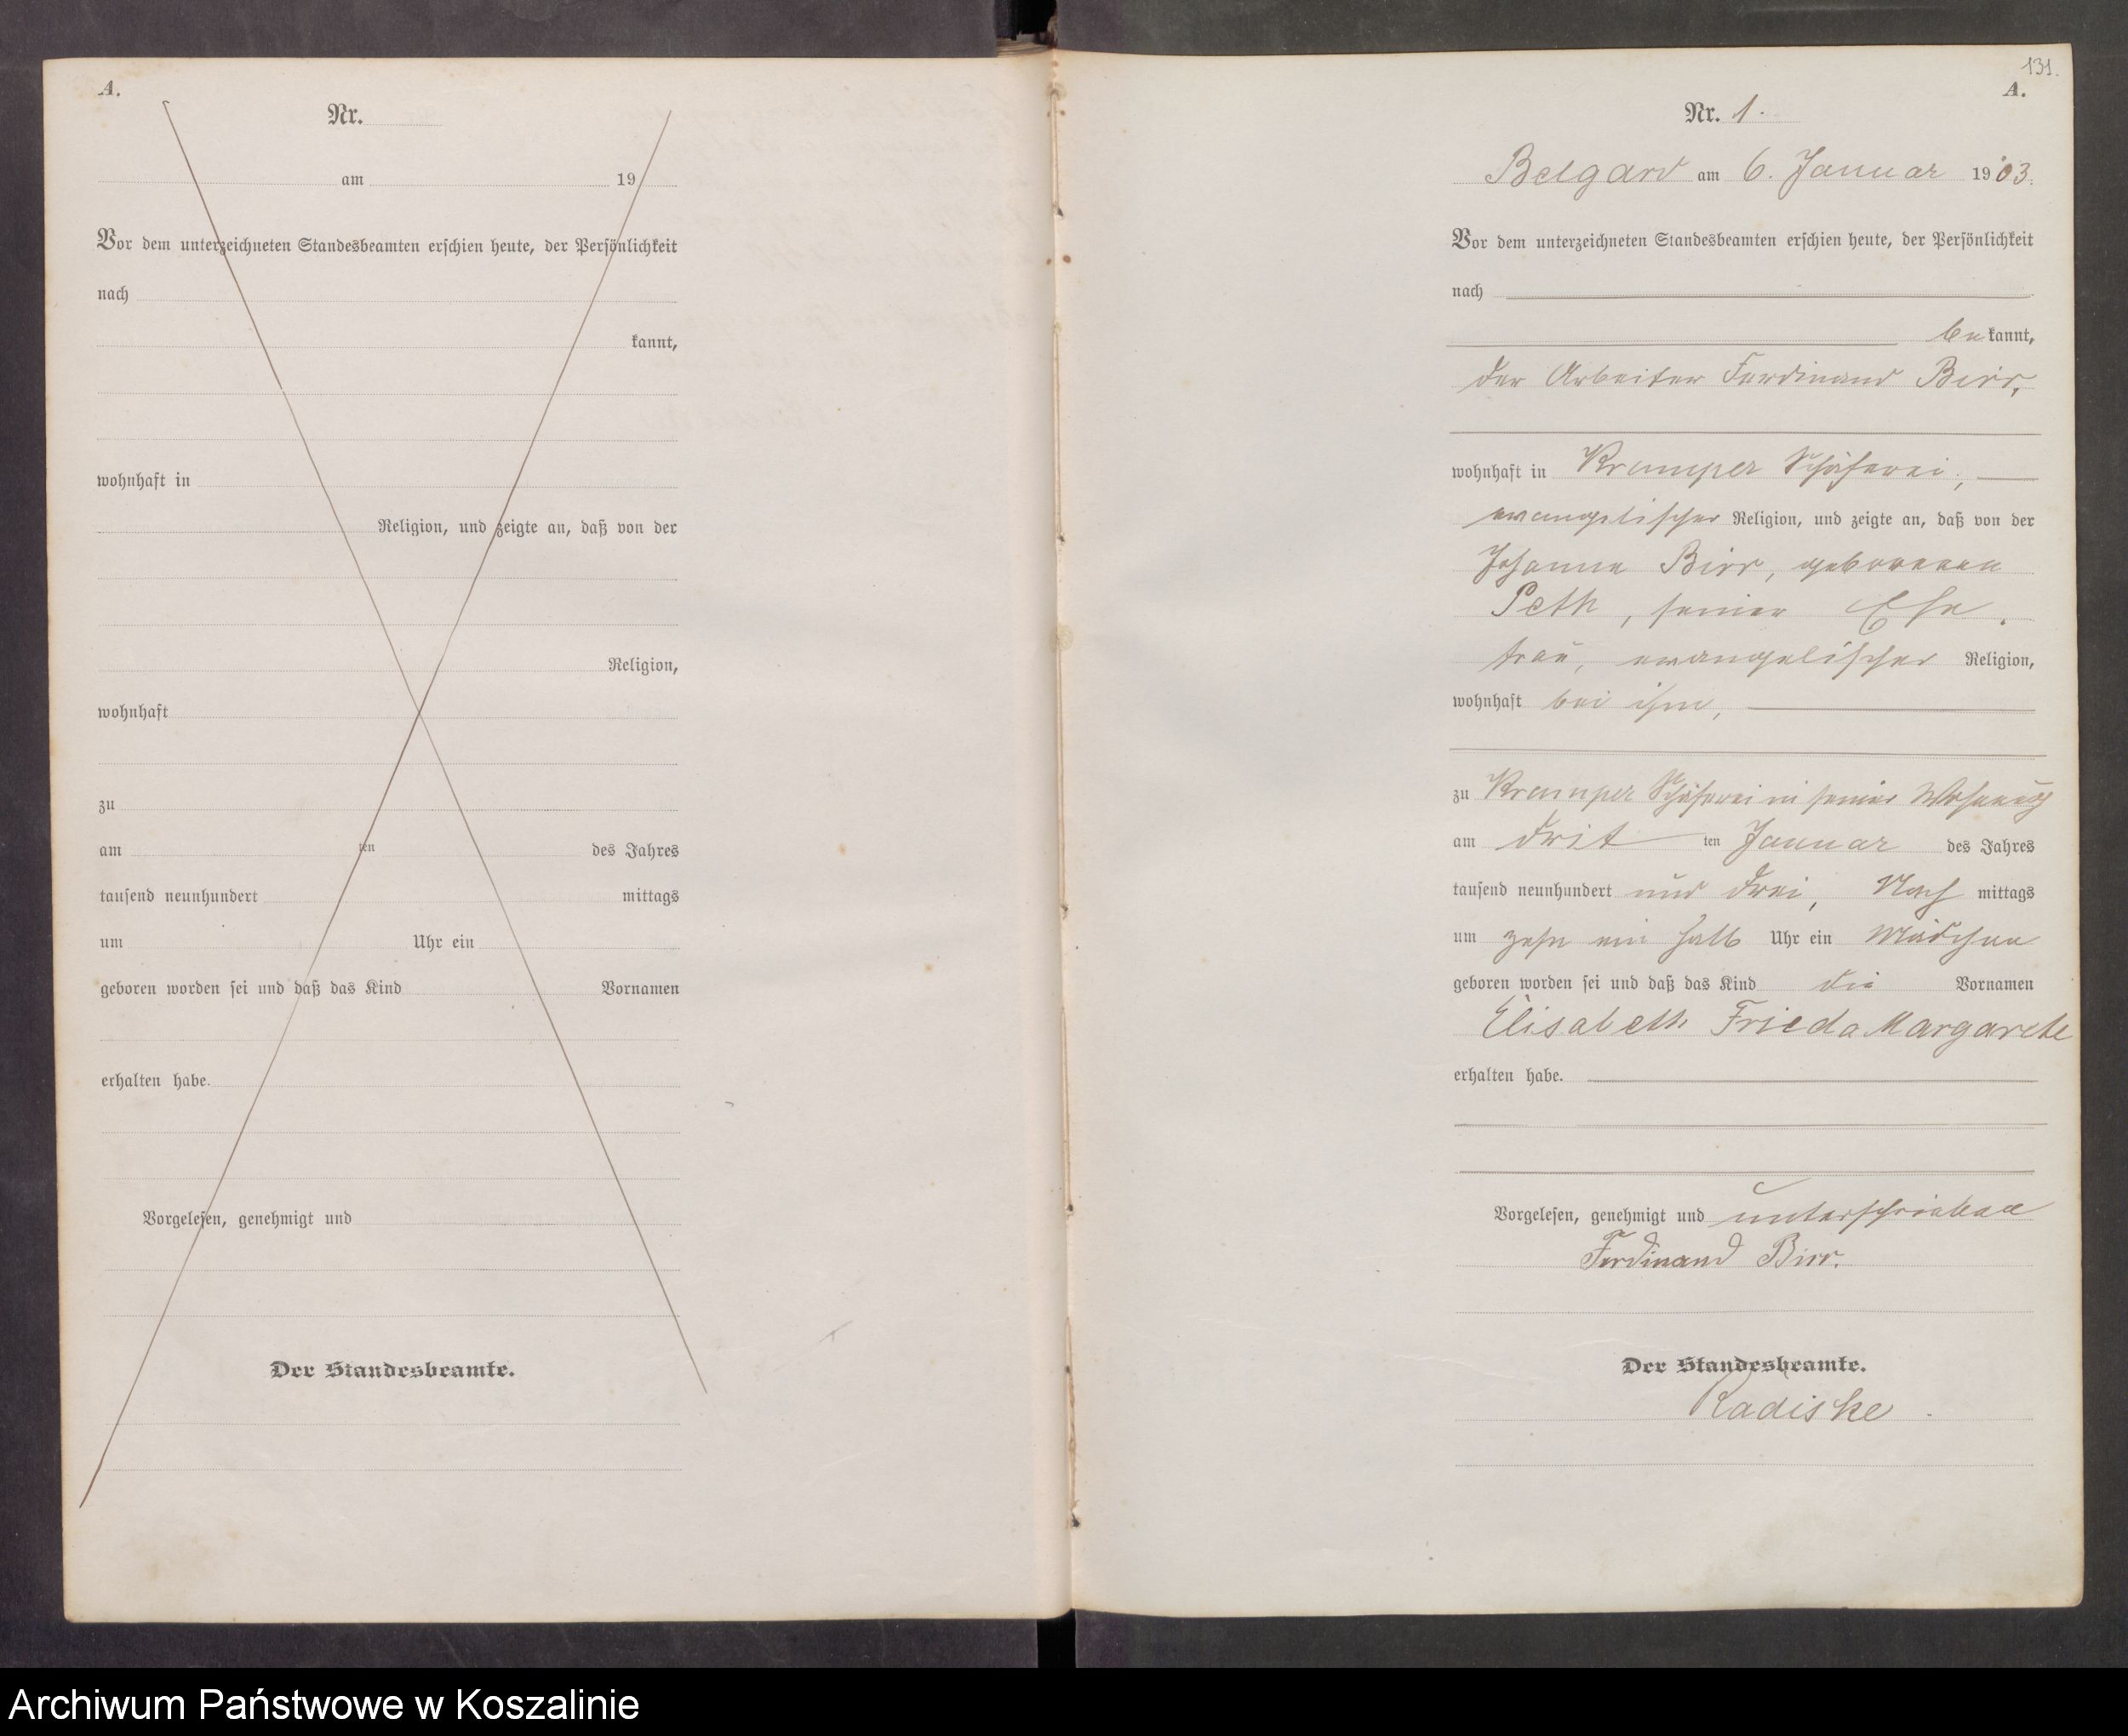 A.
Nr.
am 19
Vor dem unterzeichneten Standesbeamten erschien heute, der Persönlichkeit
nach
kannt,
wohnhaft in
Religion, und zeigte an, daß von der
Religion,
wohnhaft
zu
am ten des Jahres
tausend neunhundert mittags
um Uhr ein
geboren worden sei und daß das Kind Vornamen
erhalten habe.
Vorgelesen, genehmigt und
Der Standesbeamte.
131.
A.
Nr. 1.
Belgard am 6. Januar 1903.
Vor dem unterzeichneten Standesbeamten erschien heute, der Persönlichkeit
nach
bekannt,
der Arbeiter Ferdinand Birr,
wohnhaft in Kramper Schäferei,
evangelischer Religion, und zeigte an, daß von der
Johanne Birr, geborenen
Peth, seiner Ehe-
frau, evangelischer Religion,
wohnhaft bei ihm,
zu Kramper Schäferei in seiner Wohnung
am drit ten Januar des Jahres
tausend neunhundert und drei, Nach mittags
um zehn ein halb Uhr ein Mädchen
geboren worden sei und daß das Kind die Vornamen
Elisabeth Frieda Margarete
erhalten habe.
Vorgelesen, genehmigt und unterschrieben
Ferdinand Birr.
Der Standesbeamte.
Radiske
Archiwum Państwowe w Koszalinie